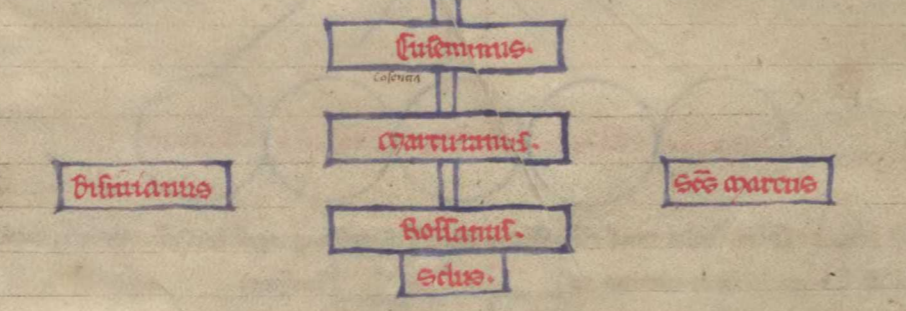 Cusentinus.
Cosentia
Marturanus.
Bisinianus
Scs Marcus
Rossanus.